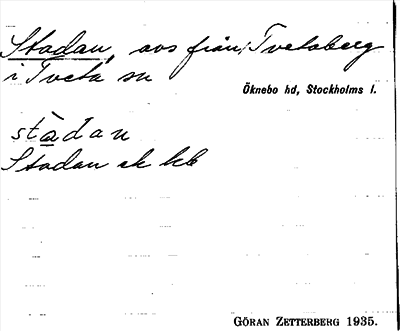 Stadan, avs från Tvetaberg
i Tveta sn
Öknebo hd, Stockholms l.
stàdan
Stadan ek kb
GÖRAN ZETTERBERG 1935.